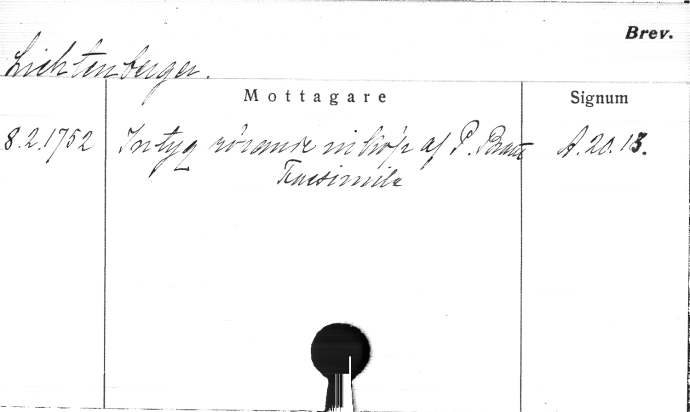 Brev.
Lichtenberger.
Mottagare
Signum
8.2.1752 Intyg rörande inköp af P. A. 20. 13.
Facsimile